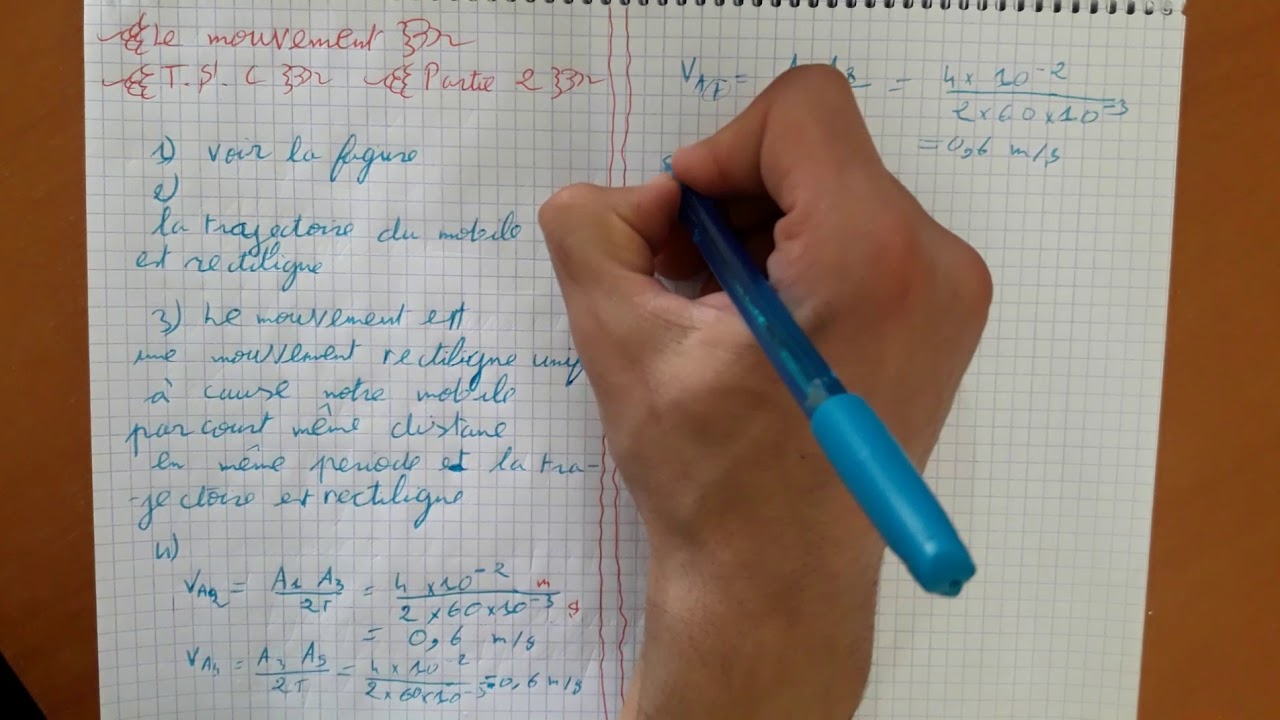 Le mouvement
T.S.C Partie 2
1) voir la figure
2)
la trajectoire du mobile
est rectiligne
3) Le mouvement est
une mouvement rectiligne unif
à cause notre mobile
parcourt même distane
en même periode et la tra-
-jectoire est rectiligne
4)
VA2 = A1 A3 / 2T = 4 × 10^-2 m / 2 × 60 × 10^-3 s
= 0,6 m/s
= 4 × 10^-2 / 2 × 60 × 10^-3 = 0,6 m/s
= 4 × 10^-2 / 2 × 60 × 10^-3
= 0,6 m/s